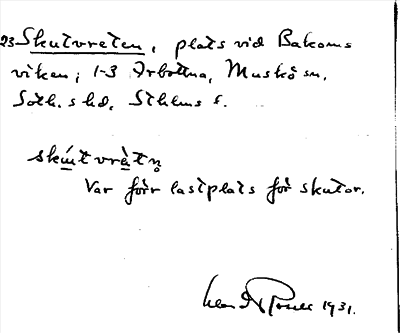 23 Skutvreten, plats vid Bakoms
viken; 1-3 Arbottna, Muskö sn.
Soth. shd, Sthlms l.
skútvrètn̥
Var förr lastplats för skutor.
1931.